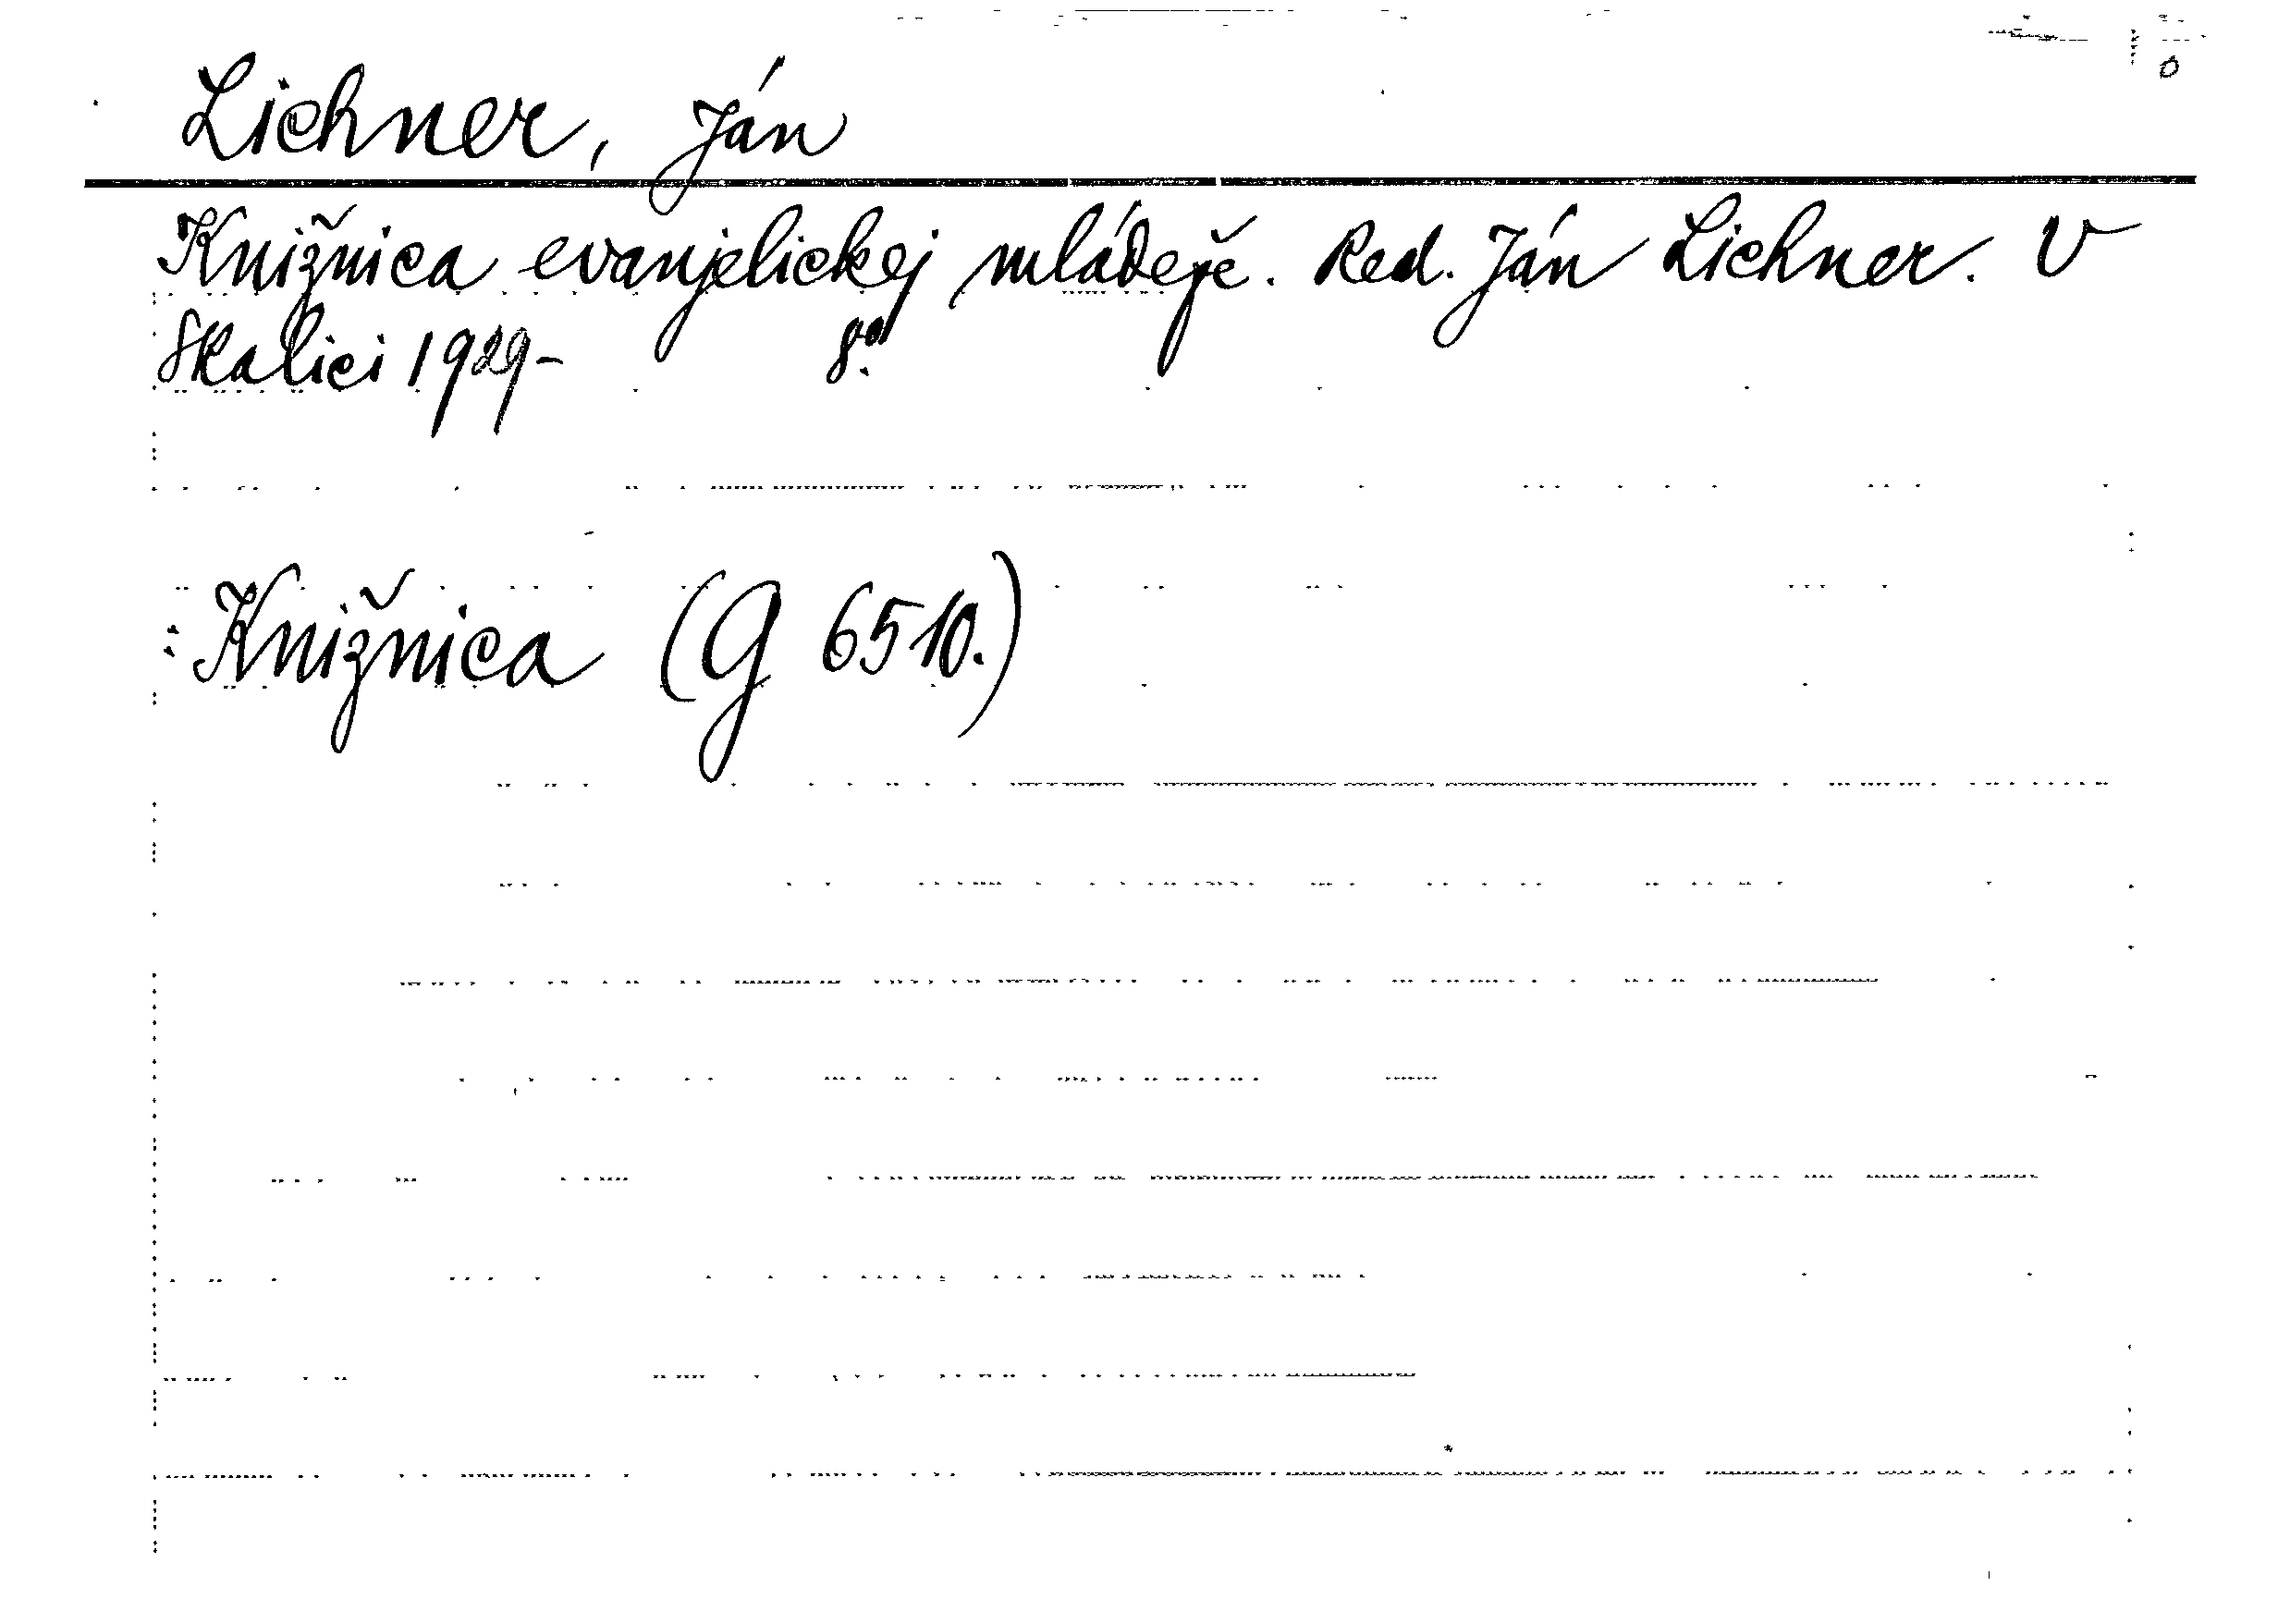 Lichner, Ján
Knižnica evanjelickej mládeže. Red. Ján Lichner. V
Skalici 1929- 8°.
Knižnica (G 6510.)